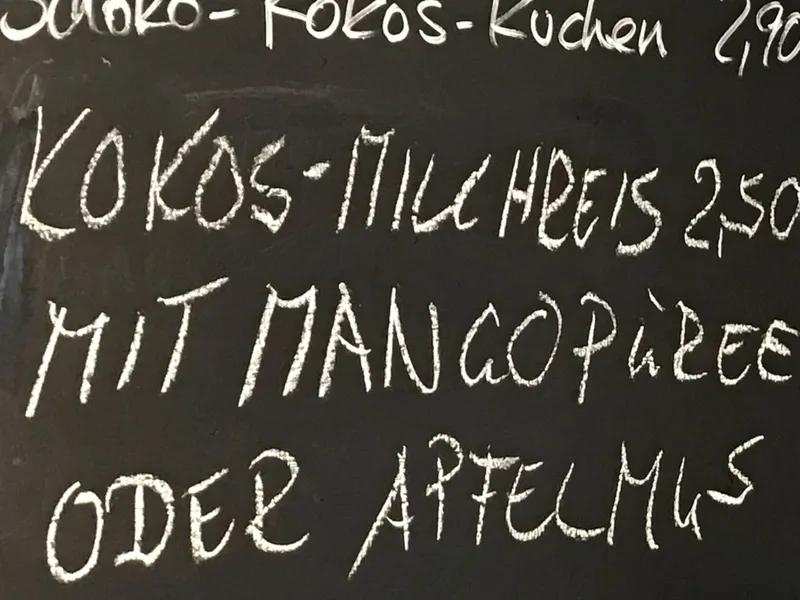 Schoko-Kokos-Kuchen 2,90
KOKOS-MILCHREIS 2,50
MIT MANGOPüREE
ODER APFELMuS